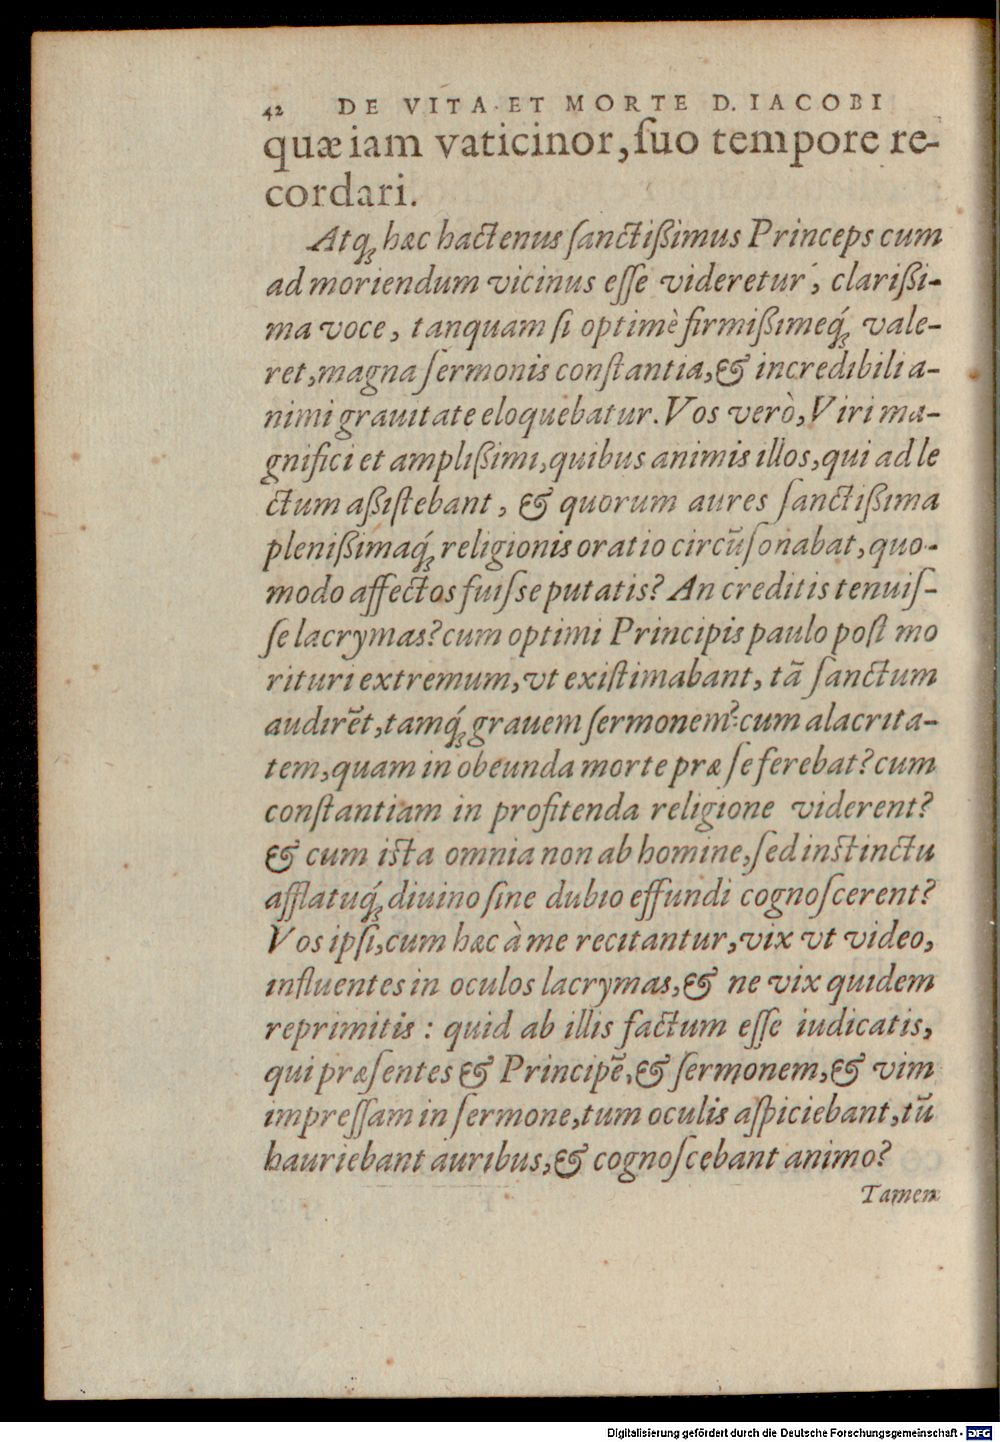 42 DE VITA ET MORTE D. IACOBI
quæ iam vaticinor, ſuo tempore re-
cordari.
Atq́ꝫ hæc hactenus ſanctißimus Princeps cum
ad moriendum vicinus eſſe videretur, clarißi-
ma voce, tanquam ſi optimè firmißimeq́ꝫ vale-
ret, magna ſermonis conſtantia, & incredibili a-
nimi grauitate eloquebatur. Vos verò, Viri ma-
gnifici et amplißimi, quibus animis illos, qui ad le
ctum aßiſtebant, & quorum aures ſanctißima
plenißimaq́ꝫ religionis oratio circũſonabat, quo-
modo affectos fuiſse putatis? An creditis tenuiſ-
ſe lacrymas? cum optimi Principis paulo poſt mo
rituri extremum, vt exiſtimabant, tã ſanctum
audirẽt, tamq́ꝫ grauem ſermonem? cum alacrita-
tem, quam in obeunda morte præ ſe ferebat? cum
conſtantiam in profitenda religione viderent?
& cum iſta omnia non ab homine, ſed inſtinctu
afflatuq́ꝫ diuino ſine dubio effundi cognoſcerent?
Vos ipſi, cum hæc à me recitantur, vix vt video,
influentes in oculos lacrymas, & ne vix quidem
reprimitis : quid ab illis factum eſſe iudicatis,
qui præſentes & Principẽ, & ſermonem, & vim
impreſſam in ſermone, tum oculis aſpiciebant, tũ
hauriebant auribus, & cognoſcebant animo?
Tamen
Digitalisierung gefördert durch die Deutsche Forschungsgemeinschaft - DFG